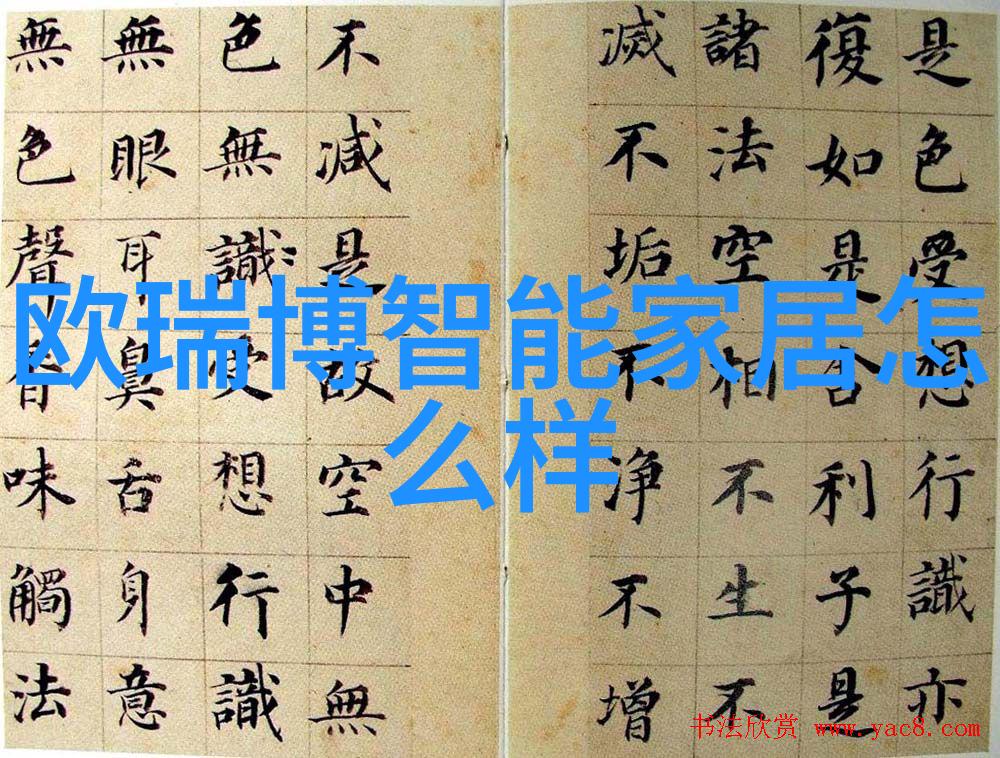 欧瑞博智能家居怎
么样
是色受想行識亦
復如是舍利子是
諸法空相不生不
滅不垢不净不增
不減是故空中無
色無識受想行識
無眼耳鼻舌身意
無色聲香味觸法
书法欣赏 www.yac8.com